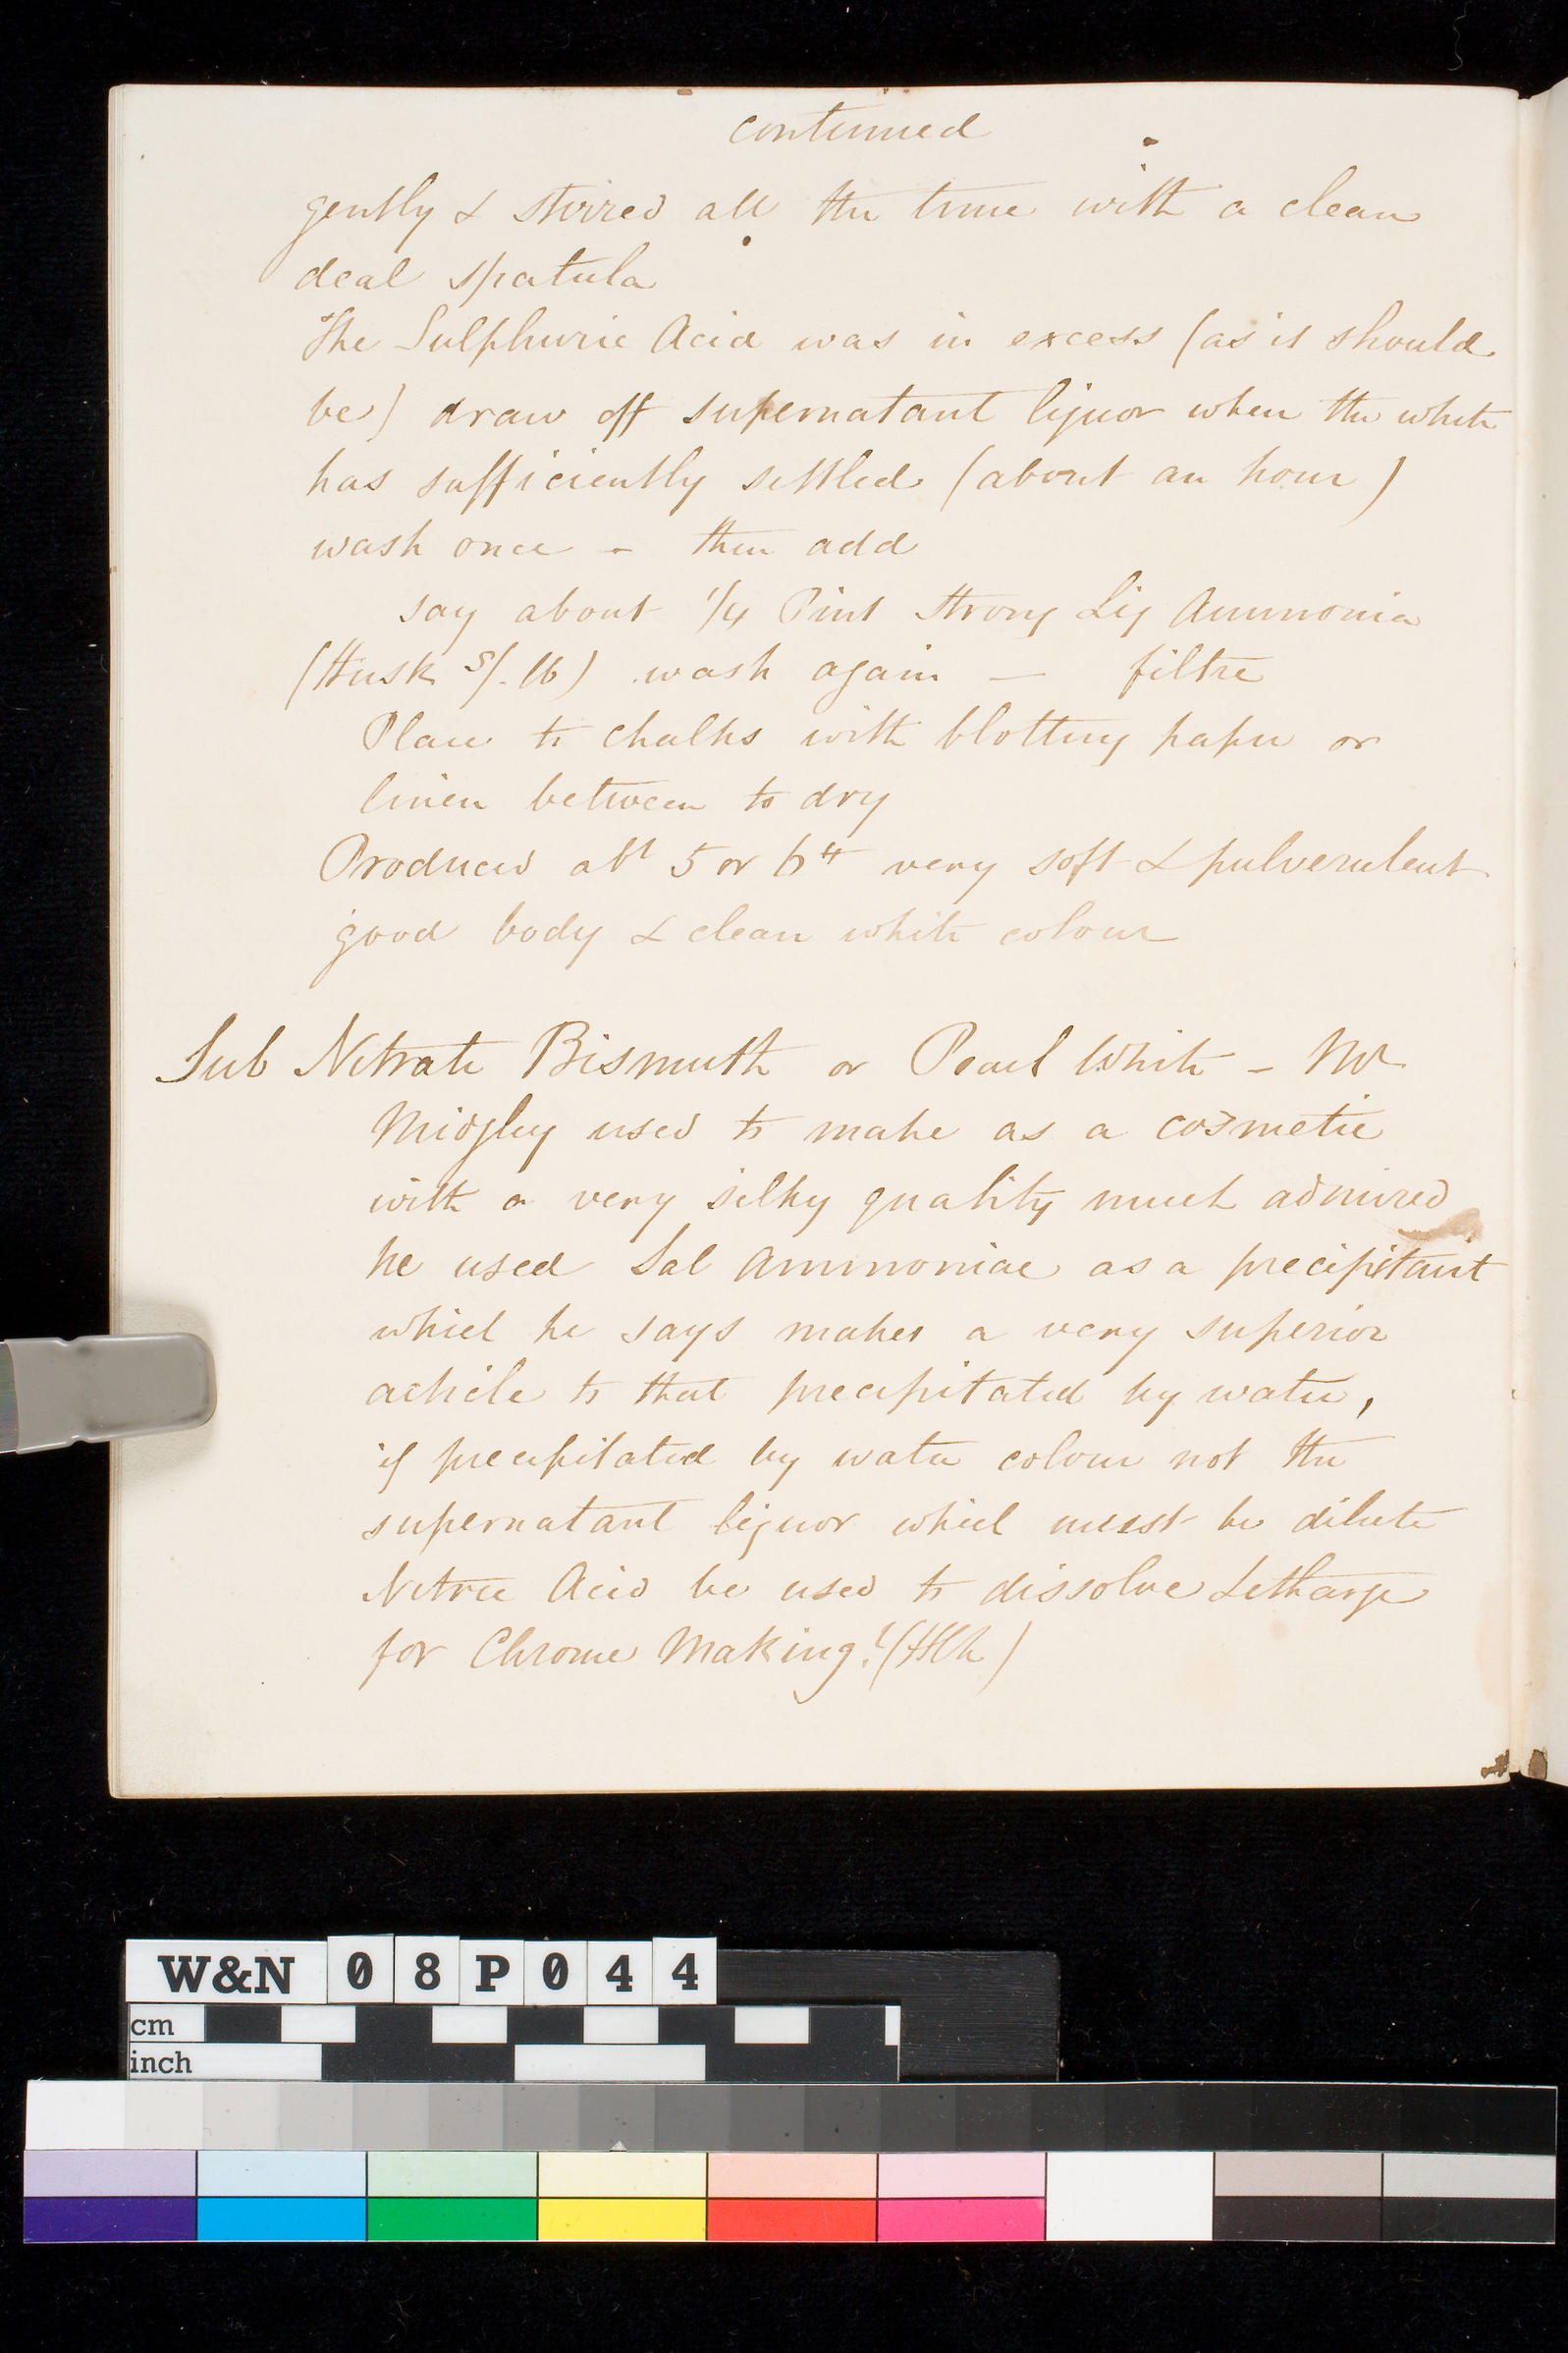 continued
gently & stirred all the time with a clean
deal spatula
The Sulphuric Acid was in excess (as it should
be) draw off supernatant liquor when the white
has sufficiently settled (about an hour)
wash once - then add
say about 1/4 Pint strong Liq Ammonia
(Husk 5/. lb) wash again — filtre
Place to chalks with blotting paper or
linen between to dry
Produced abt 5 or 6 very soft & pulverulent
good body & clean white colour
Sub Nitrate Bismuth or Pearl White - Mr
Midgley used to make as a cosmetic
with a very silky quality much admired
he used Sal Ammoniac as a precipitant
which he says makes a very superior
article to that precipitated by water,
if precipitated by water colour not the
supernatant liquor which must be dilute
Nitric Acid be used to dissolve Litharge
for Chrome Making!
W&N 08P044
cm
inch